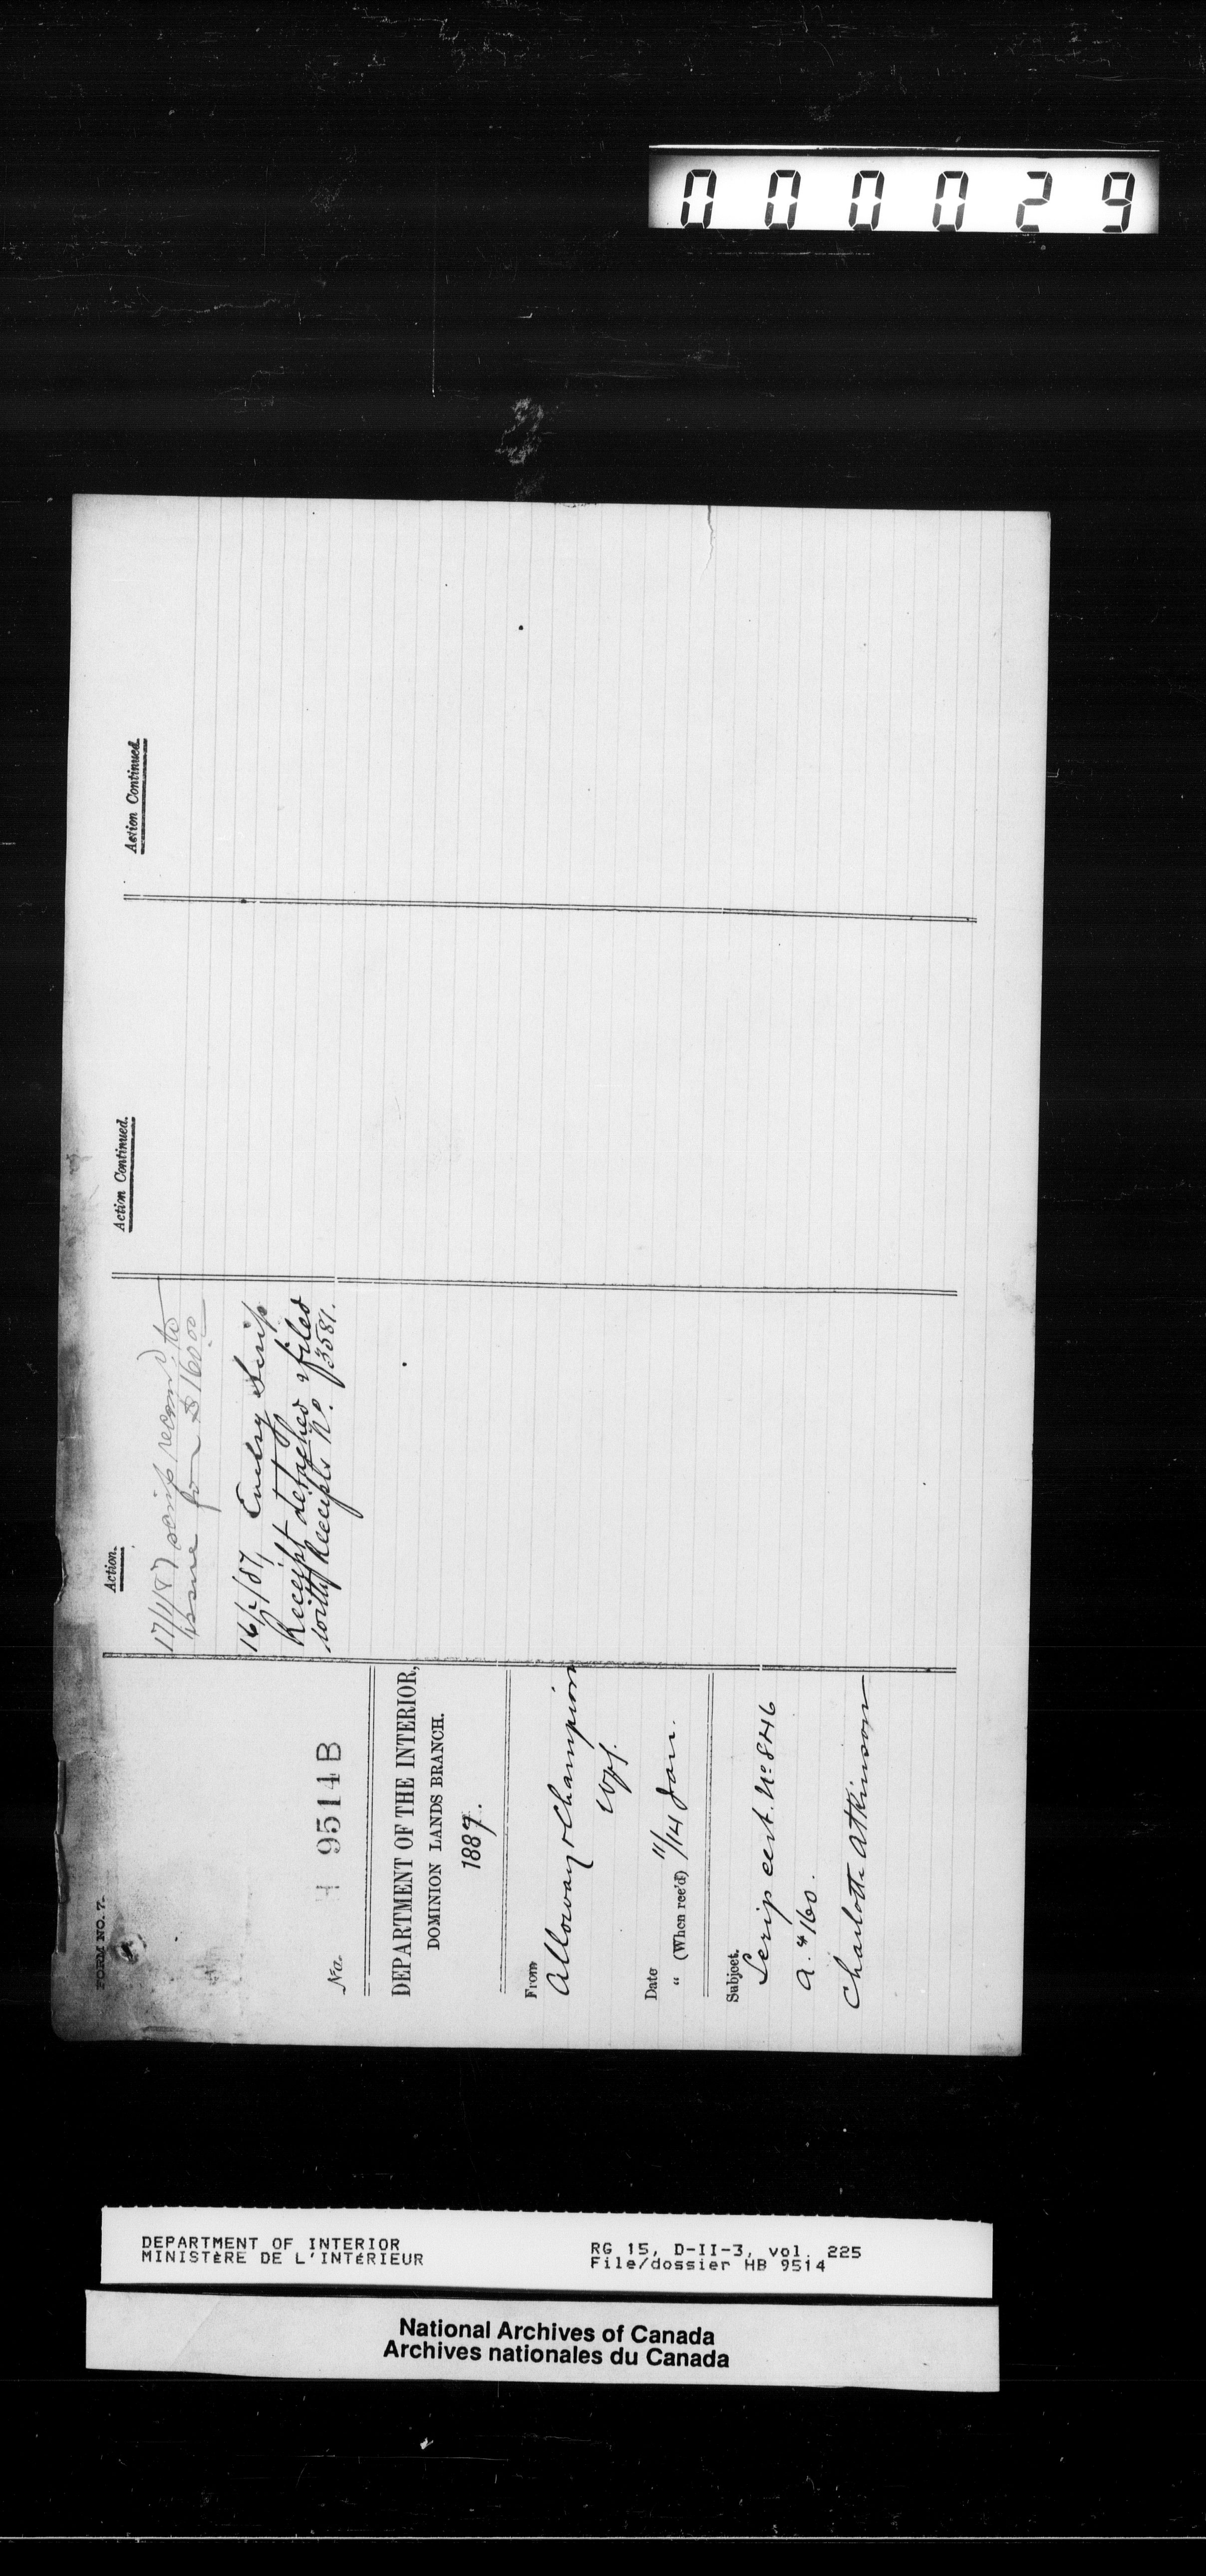 000029
FORM NO. 7.
No. H 9514 B
DEPARTMENT OF THE INTERIOR,
DOMINION LANDS BRANCH.
1887.
From
Alloway & Champion
Wpg.
Date 11/
" (When rec'd) /14 Jan.
Subject.
Scrip cert. No 846
A. $160.
Charlotte Atkinson
Action.
17/1/87 scrip recomd to
issue for $160.00
16/2/87, Scrip
Receipt detached & filed
with Receipts No. 13581.
Action Continued.
Action Continued.
DEPARTMENT OF INTERIOR
MINISTÈRE DE L'INTÉRIEUR
RG 15, D-II-3, vol. 225
File/dossier HB 9514
National Archives of Canada
Archives nationales du Canada